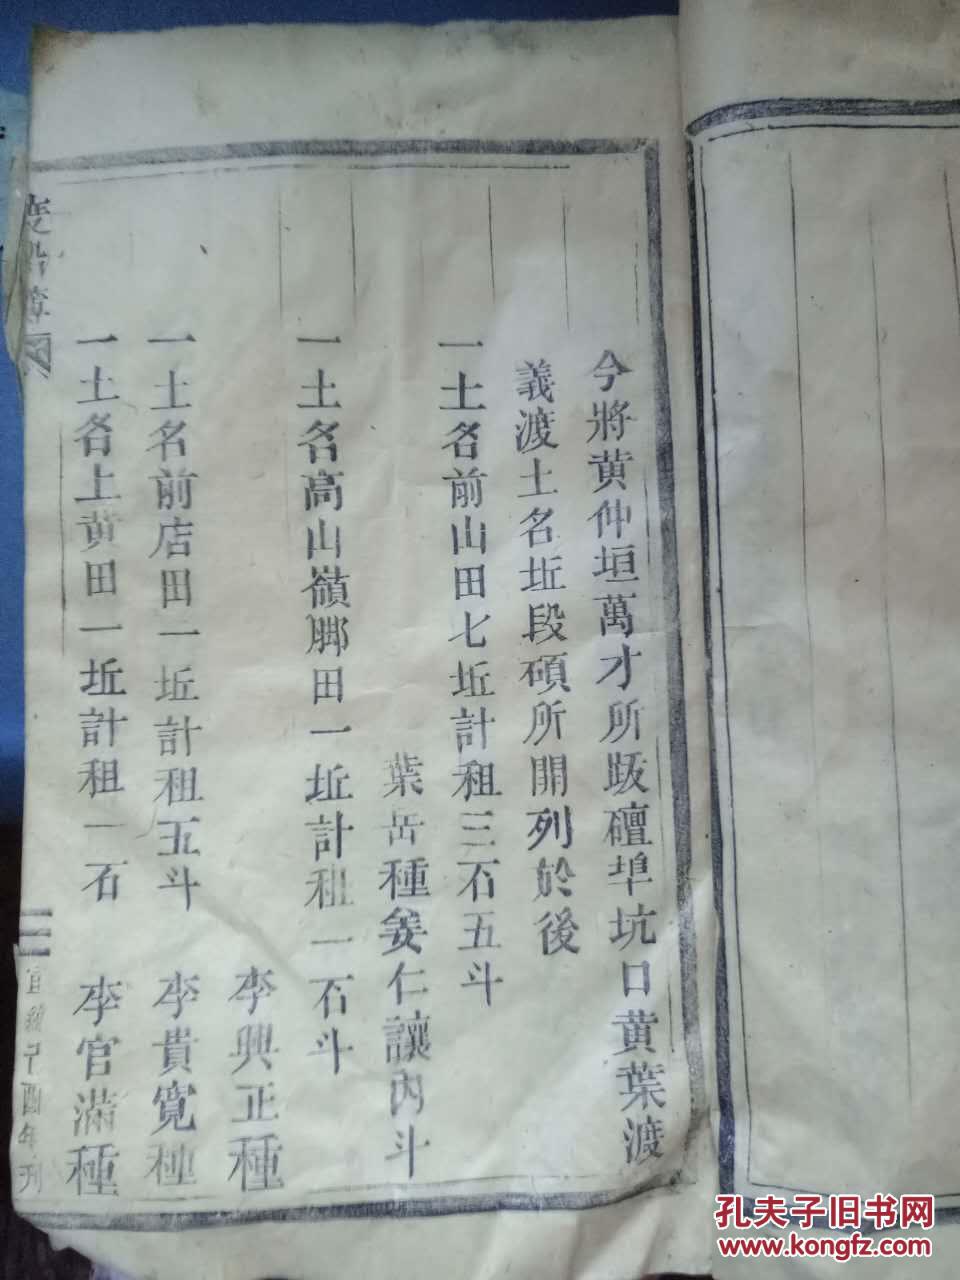 今將黄仲垣萬才所䟦礶埠坑口黄葉渡
義渡土名坵段碩所開列於後
一土名前山田七坵計租三石五斗
葉岳種姜仁讓內斗
一土名高山嶺脚田一坵計租一石斗
李興正種
一土名前店田一坵計租五斗 李貴寬種
一土各上黄田一坵計租一石 李官滿種
酉年刊
孔夫子旧书网
www.kongfz.com